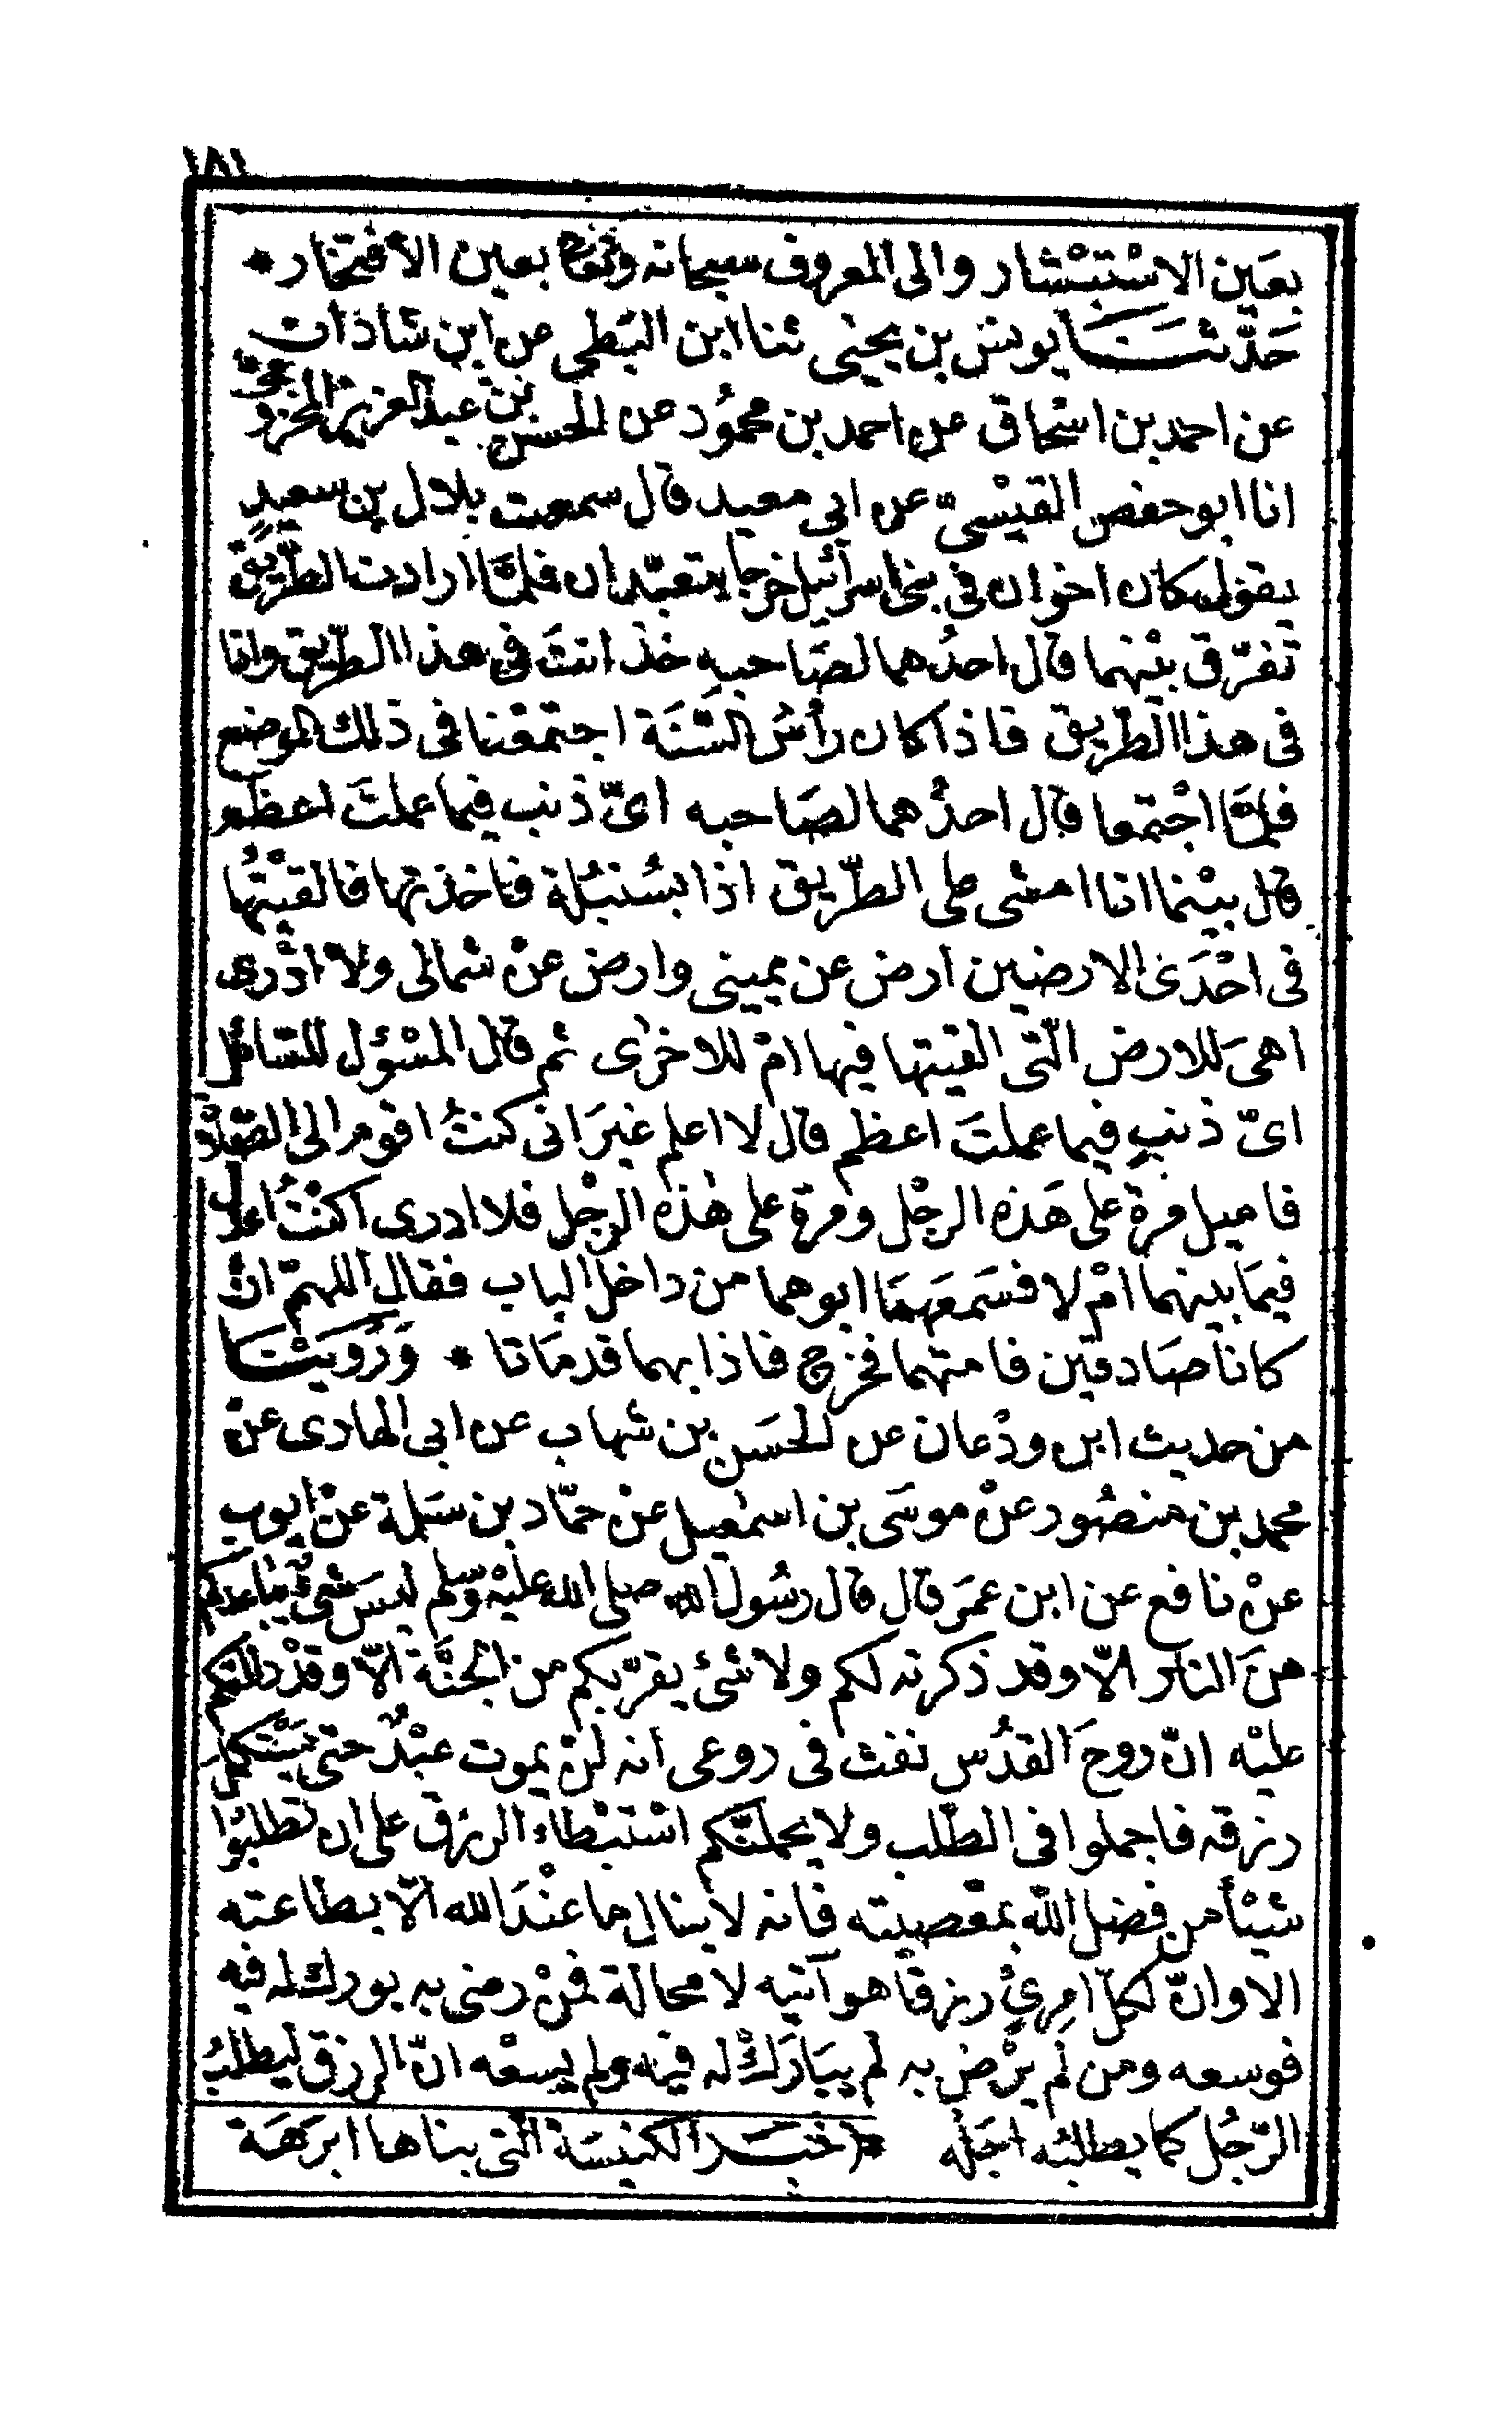 ١٨١
بعَين الاسْتبْشار والى المعروف سبحانه وتعالى بعين الأفتخار *
حَدّثنَا يونس بن يحيى ثنا ابن البَطى عن ابن شاذان
عن احمد بن اسْحاق عن احمد بن محمُود عن الحسن بن عبد العزيز المخزومىّ
انا ابو حفص القيْسىّ عن ابى معيد قال سمعت بلال بن سعيدٍ
يقول كان اخوان فى بنى اسرآئيل خرجا يتعبّدان فلمّا ارادت الطّريق
تفرّق بيْنهما قال احدُهما لصَاحبهِ خذ انتَ فى هذا الطّريق وانا
فى هذا الطّريق فاذا كان رأسُ السَّنَة اجتمعْنا فى ذلك الموضع
فلمّا اجْتمعا قال احدُهما لصَاحبه اىّ ذنب فيما عملتَ اعظم
قال بيْنما انا امشى على الطّريق اذا بسُنبُلة فاخذتها فالقيْتُها
فى احْدَى الارضين ارض عن يمينى وارض عنْ شمالى ولا ادْرى
اهىَ للارض الّتى القيتها فيها امْ للاخرٰى ثم قال المسْؤل للسّائل
اىّ ذنبٍ فيما عملتَ اعظم قال لا اعلم غيرَ انى كنتُ اقوم الى الصّلاة
فاميل مرة على هَذه الرجْل ومرة على هٰذه الرجْل فلا ادرى اكنْتُ اعدل
فيمَا بينهما امْ لا فسَمعَهمَا ابوهما من داخل الباب فقال اللهمّ انْ
كانا صَادقين فامتهما فخرج فاذا بهما قد مَاتا * وَرَوَيْنَا
من حديث ابن ودْعان عن الحسَن بن شهاب عن ابى الهادى عنْ
محمد بن منصُور عنْ موسَى بن اسمٰعيل عنْ حمّاد بن سَلمة عنْ ايوب
عنْ نافع عن ابن عمَر قال قال رسُول الله صلى الله عليْه وسلم ليسَ شىْءٌ يباعدكم
منَ النار الّا وقد ذكرته لكم ولا شئ يقرّبكم من الجنَّة الّا وقدْ دللتكم
عليْه انّ روحَ القدُس نفث فى روعى انه لنْ يموت عبْدٌ حتى يَسْتكملَ
رزقه فاجملوا فى الطّلب ولا يحملنّكم اسْتبْطاء الرزق على ان تطلبُوا
شيْأ من فضل اللّه بمعْصيته فانه لا ينال ما عنْدَ الله الّا بطاعته
الا وانّ لكلّ امرئٍ رزقا هو آتيه لا محالة فمنْ رضى به بورك له فيه
فوسعه ومن لم يرْض به لم يبَارَكْ له فيه ولم يسعْه انّ الرزق ليطلبُ
الرّجُل كما يطلبُه اجَله * (خبَر الكنيسَة الّتى بناها ابرَهَة